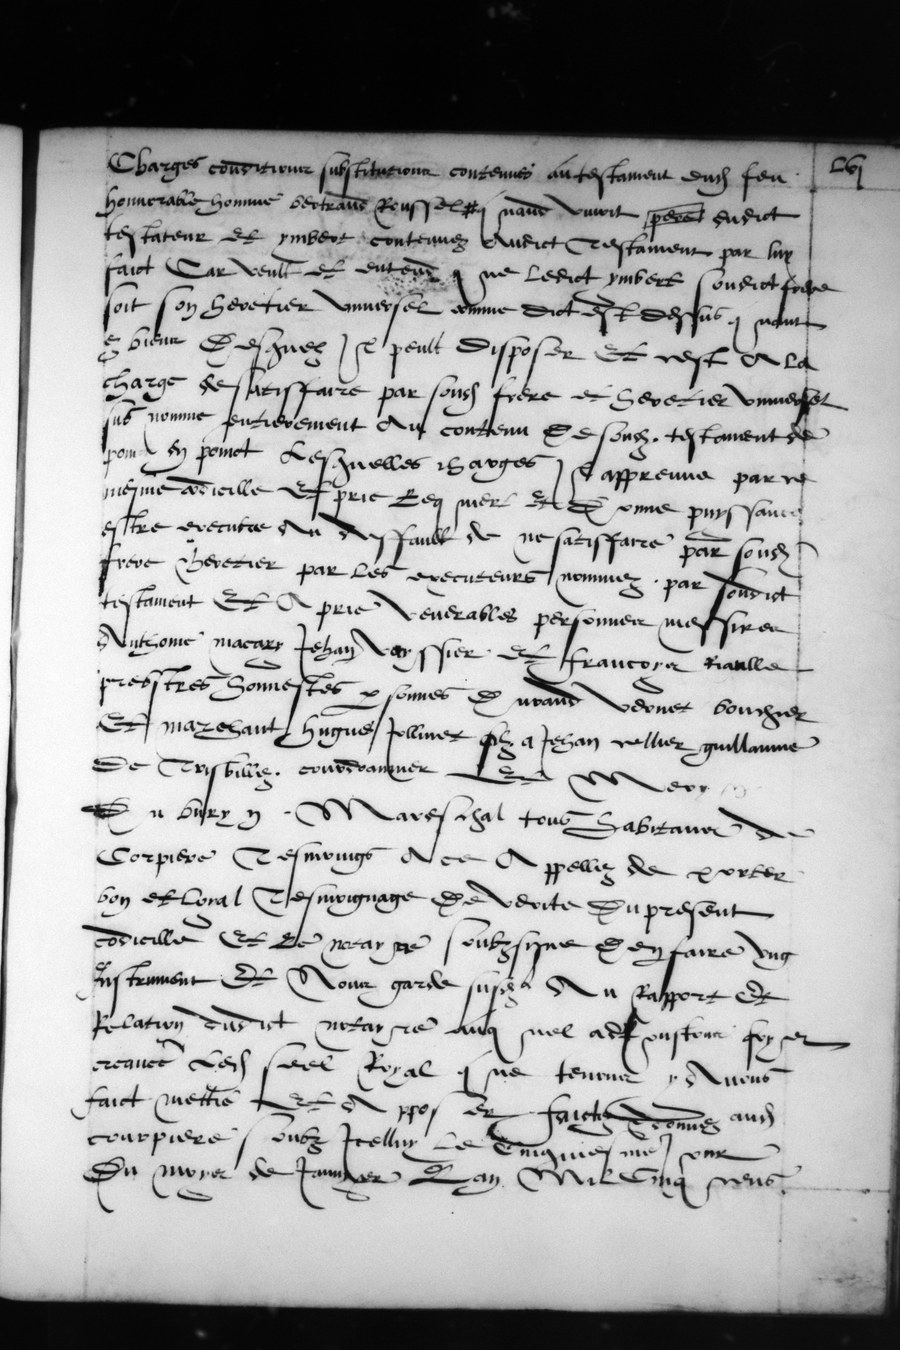 Lvj
Charges conditions substitutions contenues au testament dud feu
honnorable homme bertrand Roussel vivoit pere dudict
testateur et ymbert contenuez audict Testament par luy
faict Car veult et entend que ledict ymbert sondict frere
soit son heretier universel comme dict est dessus
biens desquelz Il peult disposer et a la
charge de satisfaire par sond frere et heretier universel
sus nomme entierement au contenu de sond testament de
point en point Lesquelles charges Il appreuve par ce
mesme codicille Et prie puyssance
estre executee au deffault de ne satisfaire par sond
frere heretier par les executeurs nommez par sondict
testament Et A prie venerables personnes messires
Anthoine macary Jehan vayssier et francoys
prebstres honnestes psonnes bouchier
Et marchant hugues Jollivet filz a Jehan tellier guillaume
De cordoannier Et Mery
Du bury Mareschal tous habitans de
Corpiere Tesmoings A ce Appellez de porter
bon et loyal Tesmoignage De verite Du present
codicille Et le notayre soubzsigne D en faire ung
Instrument Et Nous garde susd Au Rapport Et
Relation dudict notayre auquel adjoustons foy et
creance Led seel Royal que tenons y Avons
faict mettre Et Apposer faict et donne aud
courpiere soubz Icelluy Le Cinquiesme jour
Du moys de Janvyer L an Mil Cinq cens